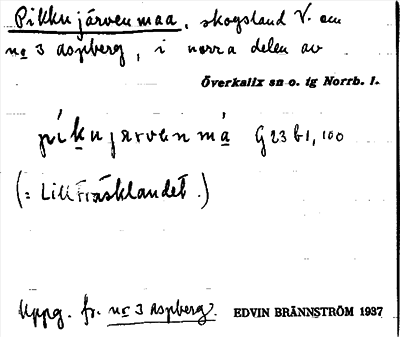 Pikkujärvenmaa, skogsland V. om
no 3 Aspberg, i norra delen av
Överkalix sn o. tg Norrb. l.
píkujarvenmá G 23 b1, 100
(: Lillträsklandet.)
Uppg. fr. no 3 Aspberg.
EDVIN BRÄNNSTRÖM 1937